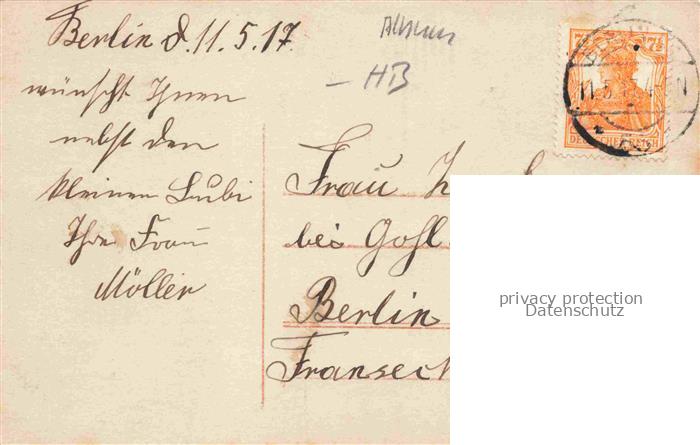 Berlin d. 11.5.17.
wünscht Ihnen
nebst den
kleinen Bubi
Ihre Frau
Möller
HB
7½
DEUTSCHES REICH
11.5.
Frau
bei Gohl
Berlin
Fransec
privacy protection
Datenschutz